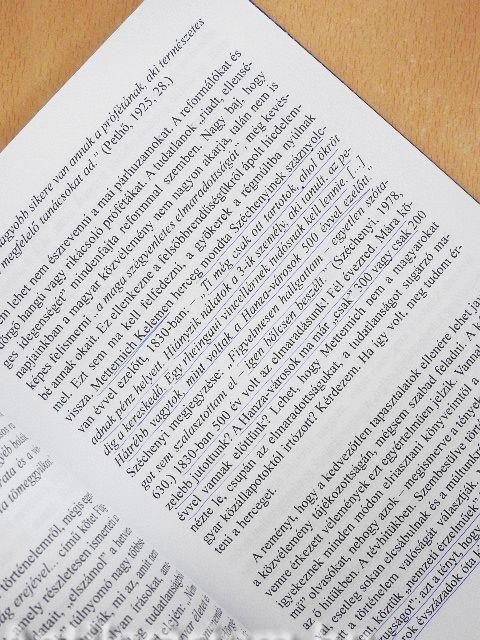 nagyobb sikere van annak a prófétának, aki természetes
megfelelő tanácsokat ad." (Pethő, 1925, 28.)
nem lehet nem észrevenni a mai párhuzamokat. A reformálókat és
hangú vagy rikácsoló prófétákat. A tudatlanok „riadt, ellensé-
ges idegenséget" mindenfajta reformmal szemben. Nagy baj, hogy
napjainkban a magyar közvélemény nem nagyon akarja, talán nem is
képes felismerni „a maga szégyenletes elmaradottságát", még kevés-
bé annak okait. Ez ellenkezne a felsőbbrendűségükről ápolt hiedelem-
mel. Ezt sem ma kell felfedezni, a gyökerek a régmúltba nyúlnak
vissza. Metternich Kelemen herceg mondta Széchenyinek száznyolc-
van évvel ezelőtt, 1831-ban: – „Ti még csak ott tartotok, ahol ökröt
adnak pénz helyett. Hiányzik nálatok a 3-ik személy, aki tanult, az pe-
dig a kereskedő. Egy főhercegi vincellérnek tudósnak kell lennie. [...]
Hátrébb vagytok, mint voltak a Hanza-városok 500 évvel ezelőtt."
Széchenyi megjegyzése: „Figyelmesen hallgattam – egyetlen szóta-
got sem szalasztottam el – igen bölcsen beszélt." (Széchenyi, 1978,
630.) 1830-ban 500 év volt az elmaradásunk! Fél évezred. Mára kö-
zelebb jutottunk? A Hanza-városok ma már „csak" 300 vagy csak 200
évvel vannak előttünk? Lehet, hogy Metternich nem a magyarokat
nézte le, csupán az elmaradottságukat, a tudatlanságot sugárzó ma-
gyar közállapotuktól irtózott? Kérdezem. Ha így volt, meg tudom ér-
teni a herceget.
A reményt, hogy a kedvezőtlen tapasztalatok ellenére lehet ja
a közvélemény tájékozottságán, mégsem szabad feladni. A k
vemre érkezett vélemények ezt egyértelműen jelzik. Vanna
igyekeznek minden módon elriasztani könyveimtől a
mű" olvasókat, nehogy azok – megismerve a tények
az ő hitükben. A tévhitükben. Szembesülve a törté
esetleg sokan elcsábulnak és a múltunkn
a történelem valóságát választják.
köztük „nemzeti érzelműek"
azt a tényt, hogy
évszázadok óta k
történelemről, mégis
erejével... című kötet
hely részletesen ismerteti
„elszámol" a
túlnyomó nagy többs
mi az, amit
írásokat, ami
tudatlanságb